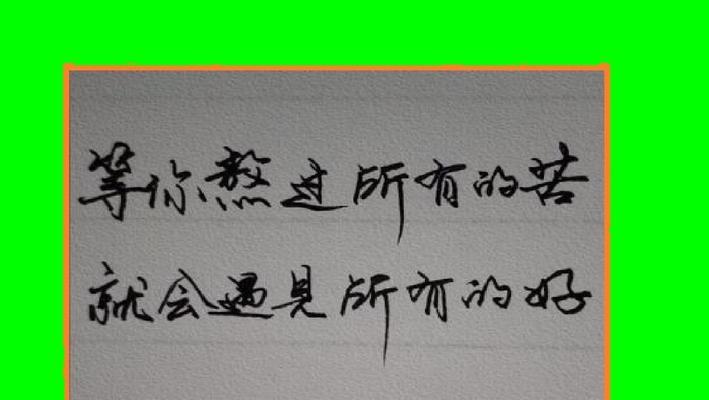 等你熬过所有的苦
就会遇见所有的好